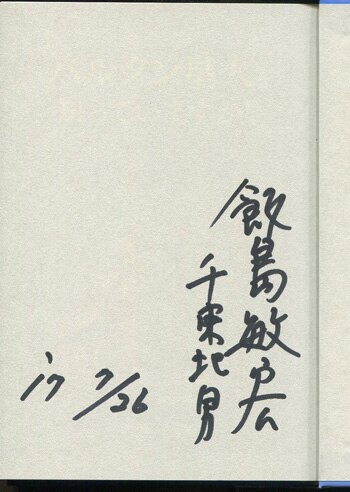 飯島敏宏
千束北男
'17 7/26